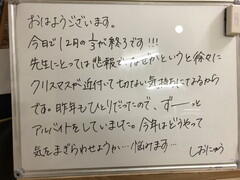 おはようございます。
今日で12月の1/3が終了です!!!
先生にとっては悲報で、なぜかというと徐々に
クリスマスが近付いて切ない気持ちになるから
です。昨年もひとりだったので、ずーーっと
アルバイトをしていました。今年はどうやって
気をまぎらわせようか…悩みます…
しおにゅう